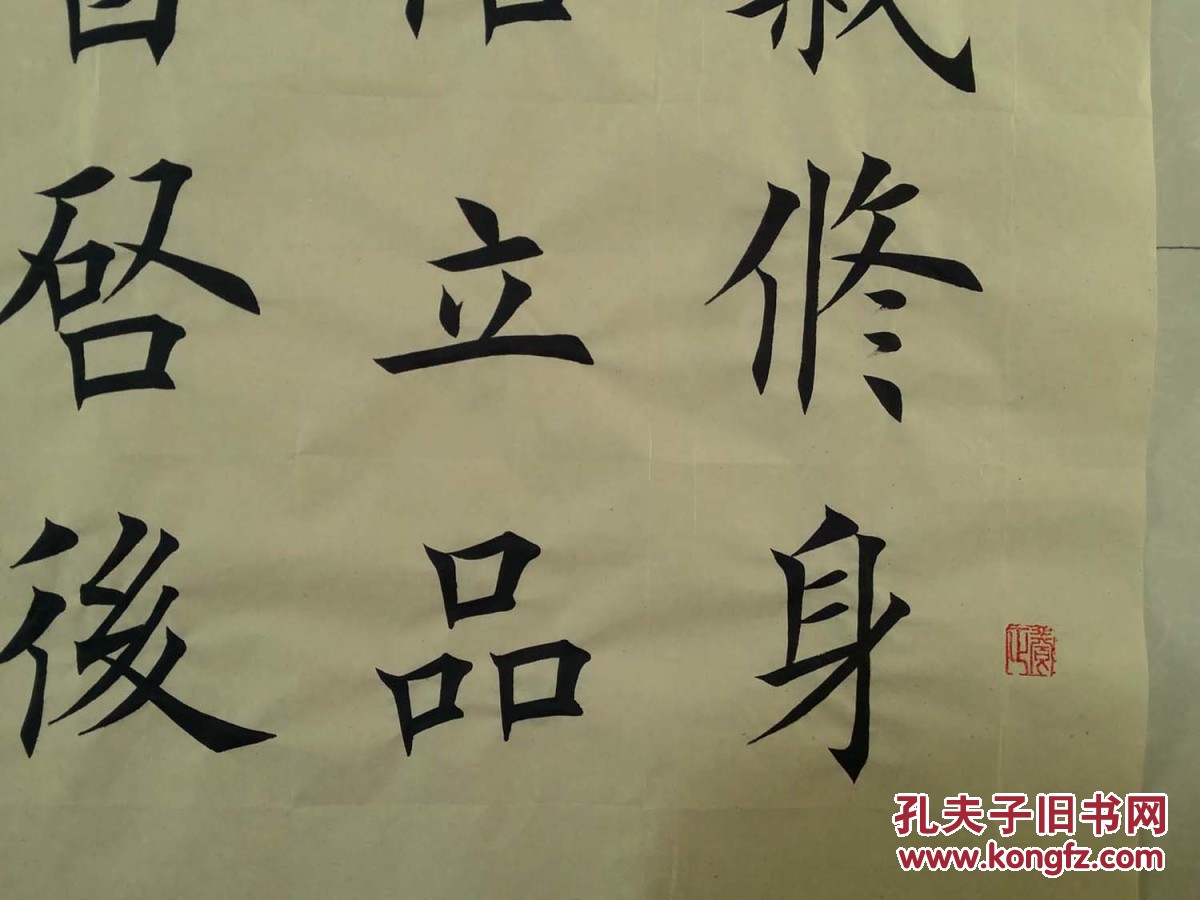 修身
立品
啓後
孔夫子旧书网
www.kongfz.com